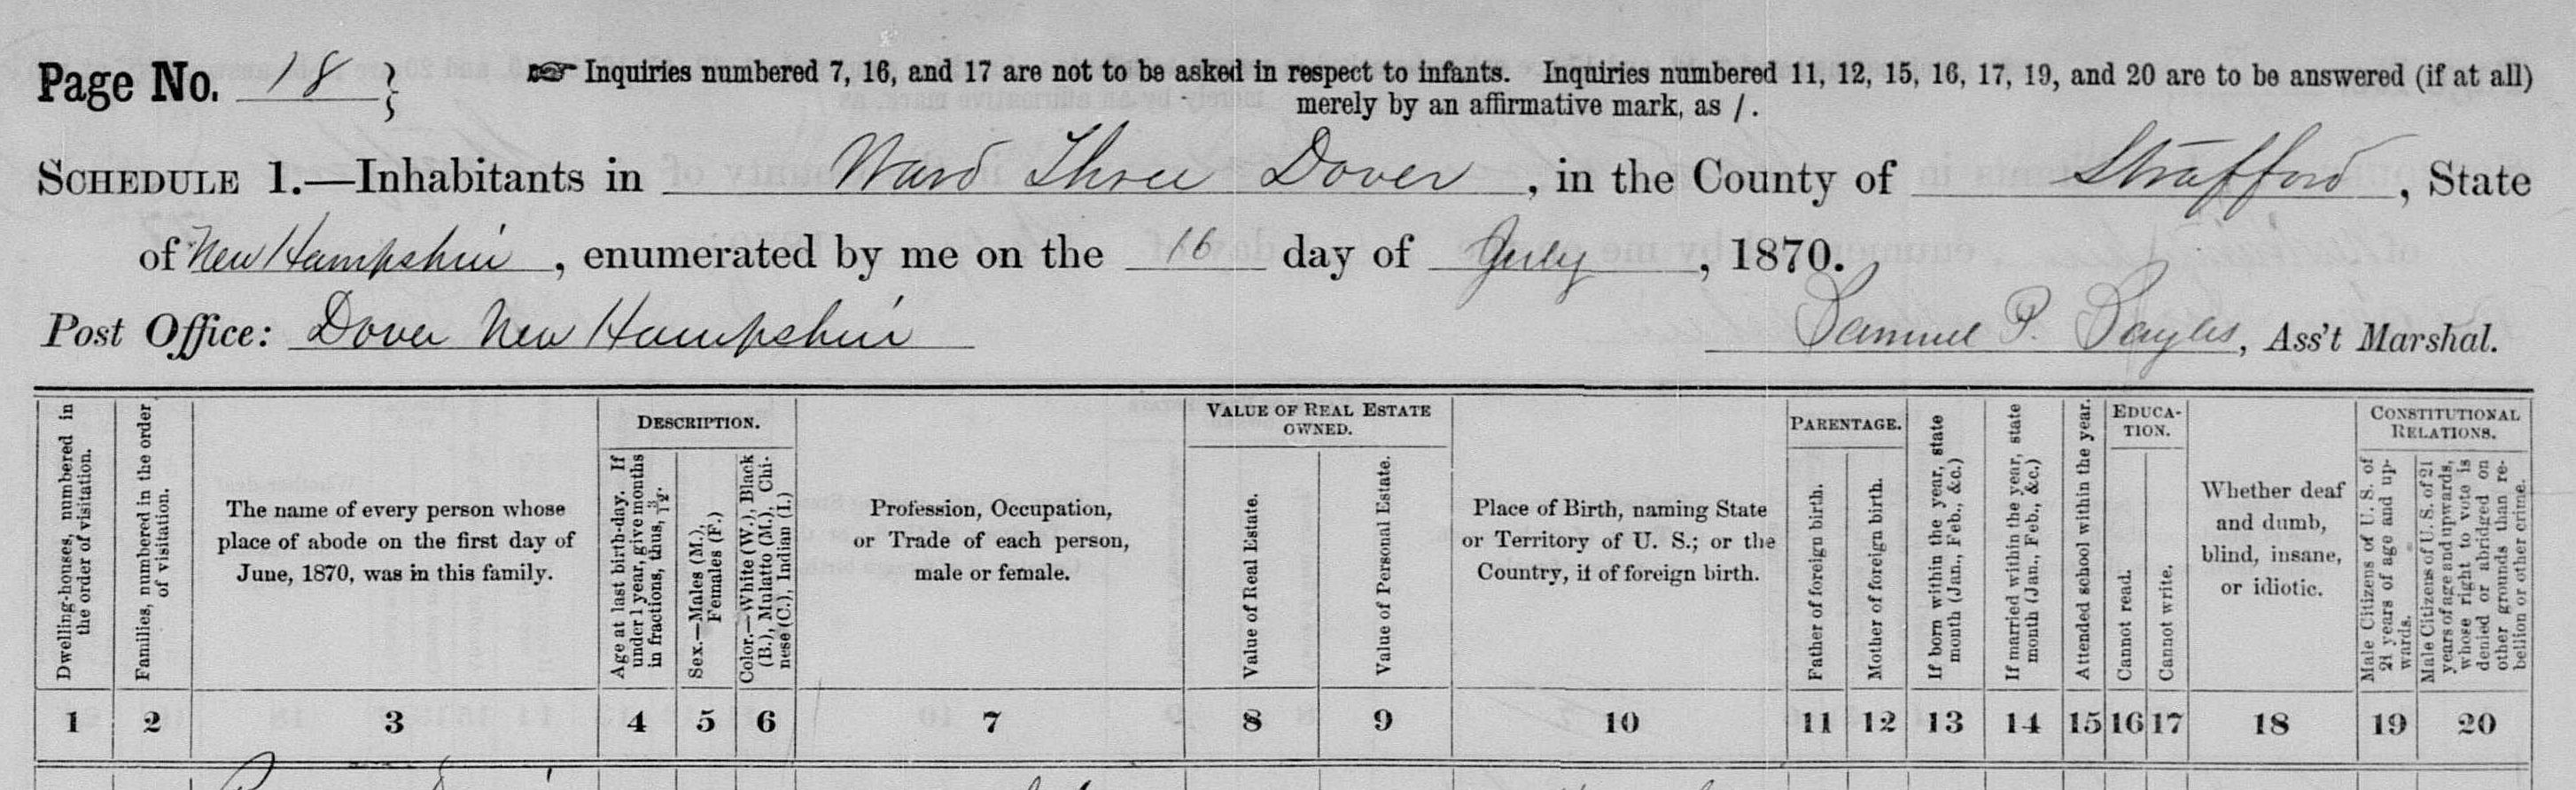 Page No. 18 }
☞ Inquiries numbered 7, 16, and 17 are not to be asked in respect to infants. Inquiries numbered 11, 12, 15, 16, 17, 19, and 20 are to be answered (if at all)
merely by an affirmative mark, as /.
SCHEDULE 1.—Inhabitants in Ward Three Dover, in the County of Strafford, State
of New Hampshire, enumerated by me on the 16 day of July, 1870.
Post Office: Dover New Hampshire
Samuel P. Sayles, Ass't Marshal.
Dwelling-houses, numbered in
the order of visitation.
Families, numbered in the order
of visitation.
The name of every person whose
place of abode on the first day of
June, 1870, was in this family.
DESCRIPTION.
Age at last birth-day. If
under 1 year, give months
in fractions, thus, 3/12.
Sex.—Males (M.),
Females (F.)
Color.—White (W.), Black
(B.), Mulatto (M.), Chi-
nese (C.), Indian (I.)
Profession, Occupation,
or Trade of each person,
male or female.
VALUE OF REAL ESTATE
OWNED.
Value of Real Estate.
Value of Personal Estate.
Place of Birth, naming State
or Territory of U. S.; or the
Country, if of foreign birth.
PARENTAGE.
Father of foreign birth.
Mother of foreign birth.
If born within the year, state
month (Jan., Feb., &c.)
If married within the year, state
month (Jan., Feb., &c.)
Attended school within the year.
EDUCA-
TION.
Cannot read.
Cannot write.
Whether deaf
and dumb,
blind, insane,
or idiotic.
CONSTITUTIONAL
RELATIONS.
Male Citizens of U. S. of
21 years of age and up-
wards.
Male Citizens of U. S. of 21
years of age and upwards,
whose right to vote is
denied or abridged on
other grounds than re-
bellion or other crime.
1 2 3 4 5 6 7 8 9 10 11 12 13 14 15 16 17 18 19 20